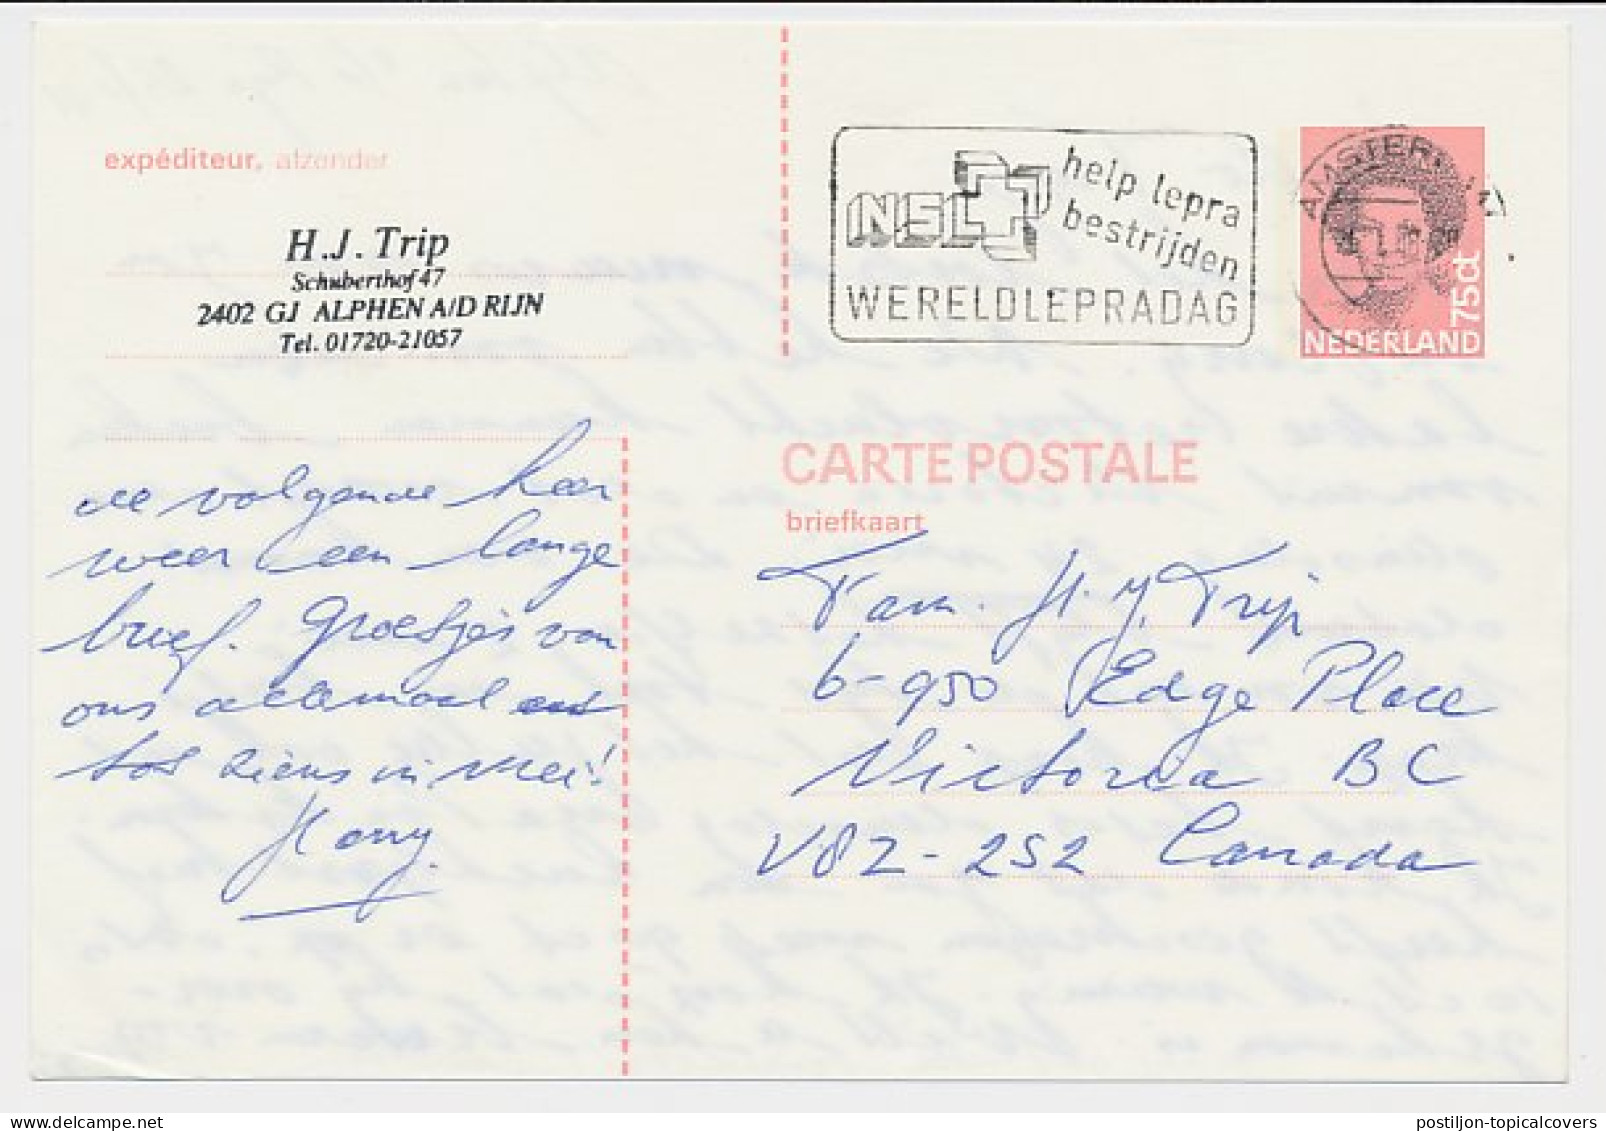 expéditeur, afzender
H.J. Trip
Schuberthof 47
2402 GJ ALPHEN A/D RIJN
Tel. 01720-21057
NSL
help lepra
bestrijden
WERELDLEPRADAG
AMSTERDAM
75ct
NEDERLAND
CARTE POSTALE
briefkaart
de volgende keer
weer een lange
brief. Groetjes van
ons allemaal en
tot ziens in mei!
Harry.
Fam. H.J. Trip
6-950 Edge Place
Victoria BC
V8Z-2S2 Canada
postiljon-topicalcovers